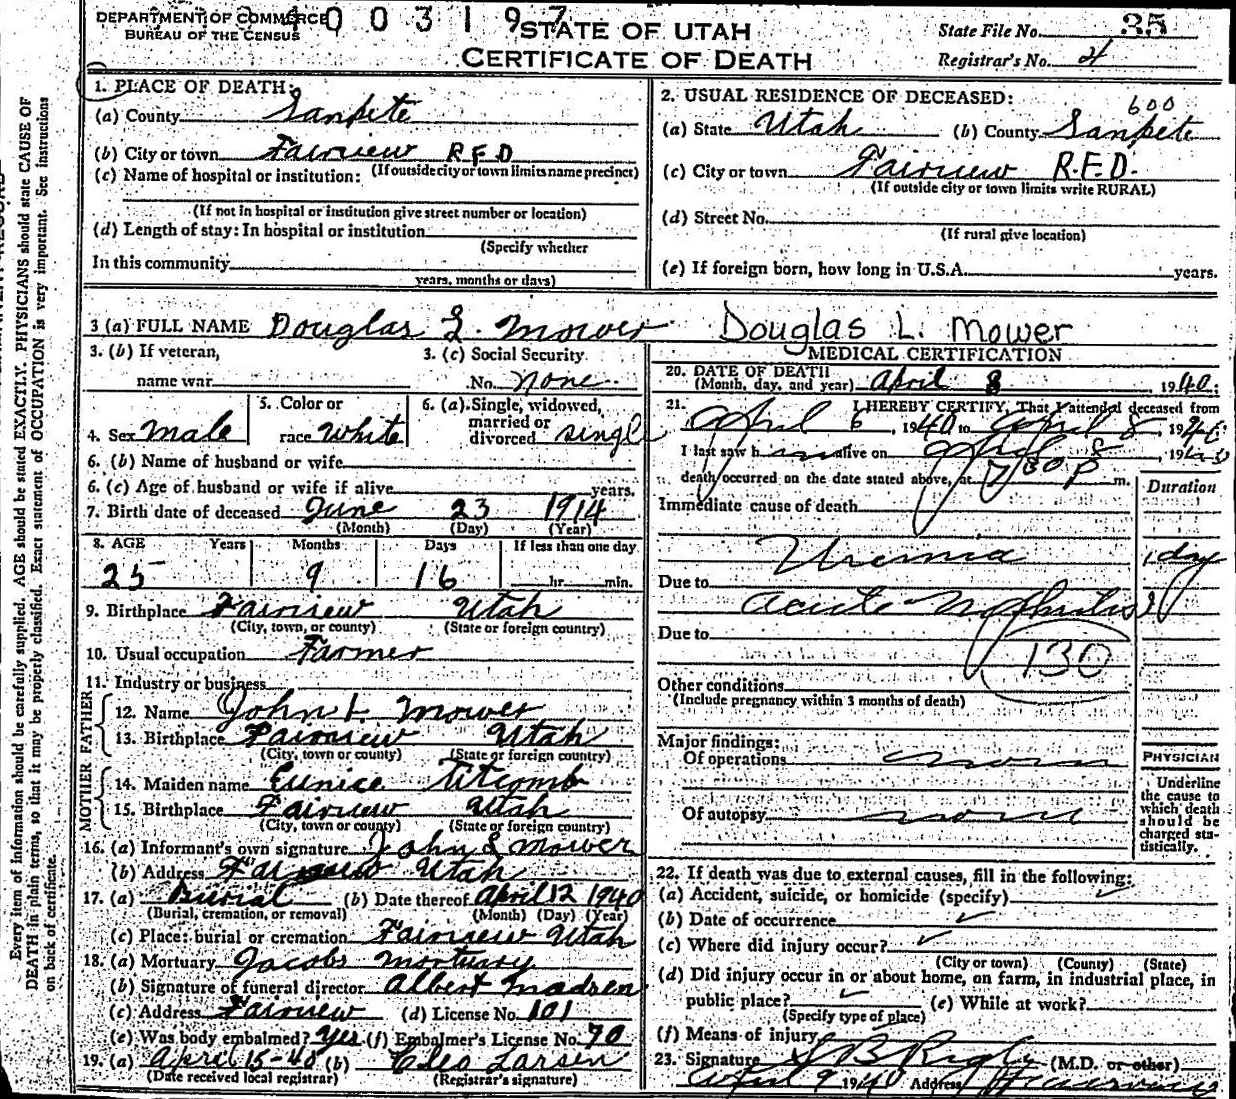 DEPARTMENT OF COMMERCE
BUREAU OF THE CENSUS
4003197
STATE OF UTAH
CERTIFICATE OF DEATH
State File No. 35
Registrar's No. 4
Every item of information should be carefully supplied. AGE should be stated EXACTLY. PHYSICIANS should state CAUSE OF
DEATH in plain terms, so that it may be properly classified. Exact statement of OCCUPATION is very important. See instructions
on back of certificate.
1. PLACE OF DEATH:
(a) County Sanpete
(b) City or town Fairview R.F.D
(If outside city or town limits name precinct)
(c) Name of hospital or institution:
(If not in hospital or institution give street number or location)
(d) Length of stay: In hospital or institution
(Specify whether
In this community
years, months or days)
2. USUAL RESIDENCE OF DECEASED:
600
(a) State Utah (b) County Sanpete
(c) City or town Fairview R.F.D.
(If outside city or town limits write RURAL)
(d) Street No.
(If rural give location)
(e) If foreign born, how long in U.S.A. years.
3 (a) FULL NAME Douglas L. Mower Douglas L. Mower
3. (b) If veteran,
name war
3. (c) Social Security
No. none
4. Sex Male
5. Color or
race White
6. (a) Single, widowed,
married or
divorced single
6. (b) Name of husband or wife
6. (c) Age of husband or wife if alive years.
7. Birth date of deceased June 23 1914
(Month) (Day) (Year)
8. AGE Years Months Days If less than one day
25 9 16 hr. min.
9. Birthplace Fairview Utah
(City, town, or county) (State or foreign country)
10. Usual occupation Farmer
11. Industry or business
FATHER
12. Name John L. Mower
13. Birthplace Fairview Utah
(City, town or county) (State or foreign country)
MOTHER
14. Maiden name Eunice Titcomb
15. Birthplace Fairview Utah
(City, town or county) (State or foreign country)
16. (a) Informant's own signature John L Mower
(b) Address Fairview Utah
17. (a) Burial (b) Date thereof April 12 1940
(Burial, cremation, or removal) (Month) (Day) (Year)
(c) Place: burial or cremation Fairview Utah
18. (a) Mortuary Jacobs Mortuary
(b) Signature of funeral director Albert Madsen
(c) Address Fairview (d) License No. 101
(e) Was body embalmed? Yes (f) Embalmer's License No. 70
19. (a) April 15-40 (b) Cleo Larsen
(Date received local registrar) (Registrar's signature)
MEDICAL CERTIFICATION
20. DATE OF DEATH
(Month, day, and year) April 8, 1940.
21. I HEREBY CERTIFY, That I attended deceased from
April 6, 1940 to April 8, 1940
I last saw h im alive on April 8, 1940
death occurred on the date stated above, at 7:30 P m.
Duration
Immediate cause of death
Uremia 1 day
Due to
Acute Nephritis
Due to
130
Other conditions
(Include pregnancy within 3 months of death)
Major findings:
Of operations none
Of autopsy none
PHYSICIAN
Underline
the cause to
which death
should be
charged sta-
tistically.
22. If death was due to external causes, fill in the following:
(a) Accident, suicide, or homicide (specify) ✓
(b) Date of occurrence ✓
(c) Where did injury occur? ✓
(City or town) (County) (State)
(d) Did injury occur in or about home, on farm, in industrial place, in
public place? ✓ (e) While at work?
(Specify type of place)
(f) Means of injury
23. Signature (M.D. or other)
April 9 1940 Address